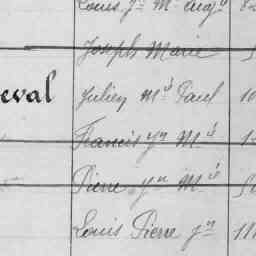 Louis Jn Mie Aug
Joseph Marie
eval Julien Mie Paul 10
Francis Jn Mie 1
Pierre Jn Mie
Louis Pierre Jn 11